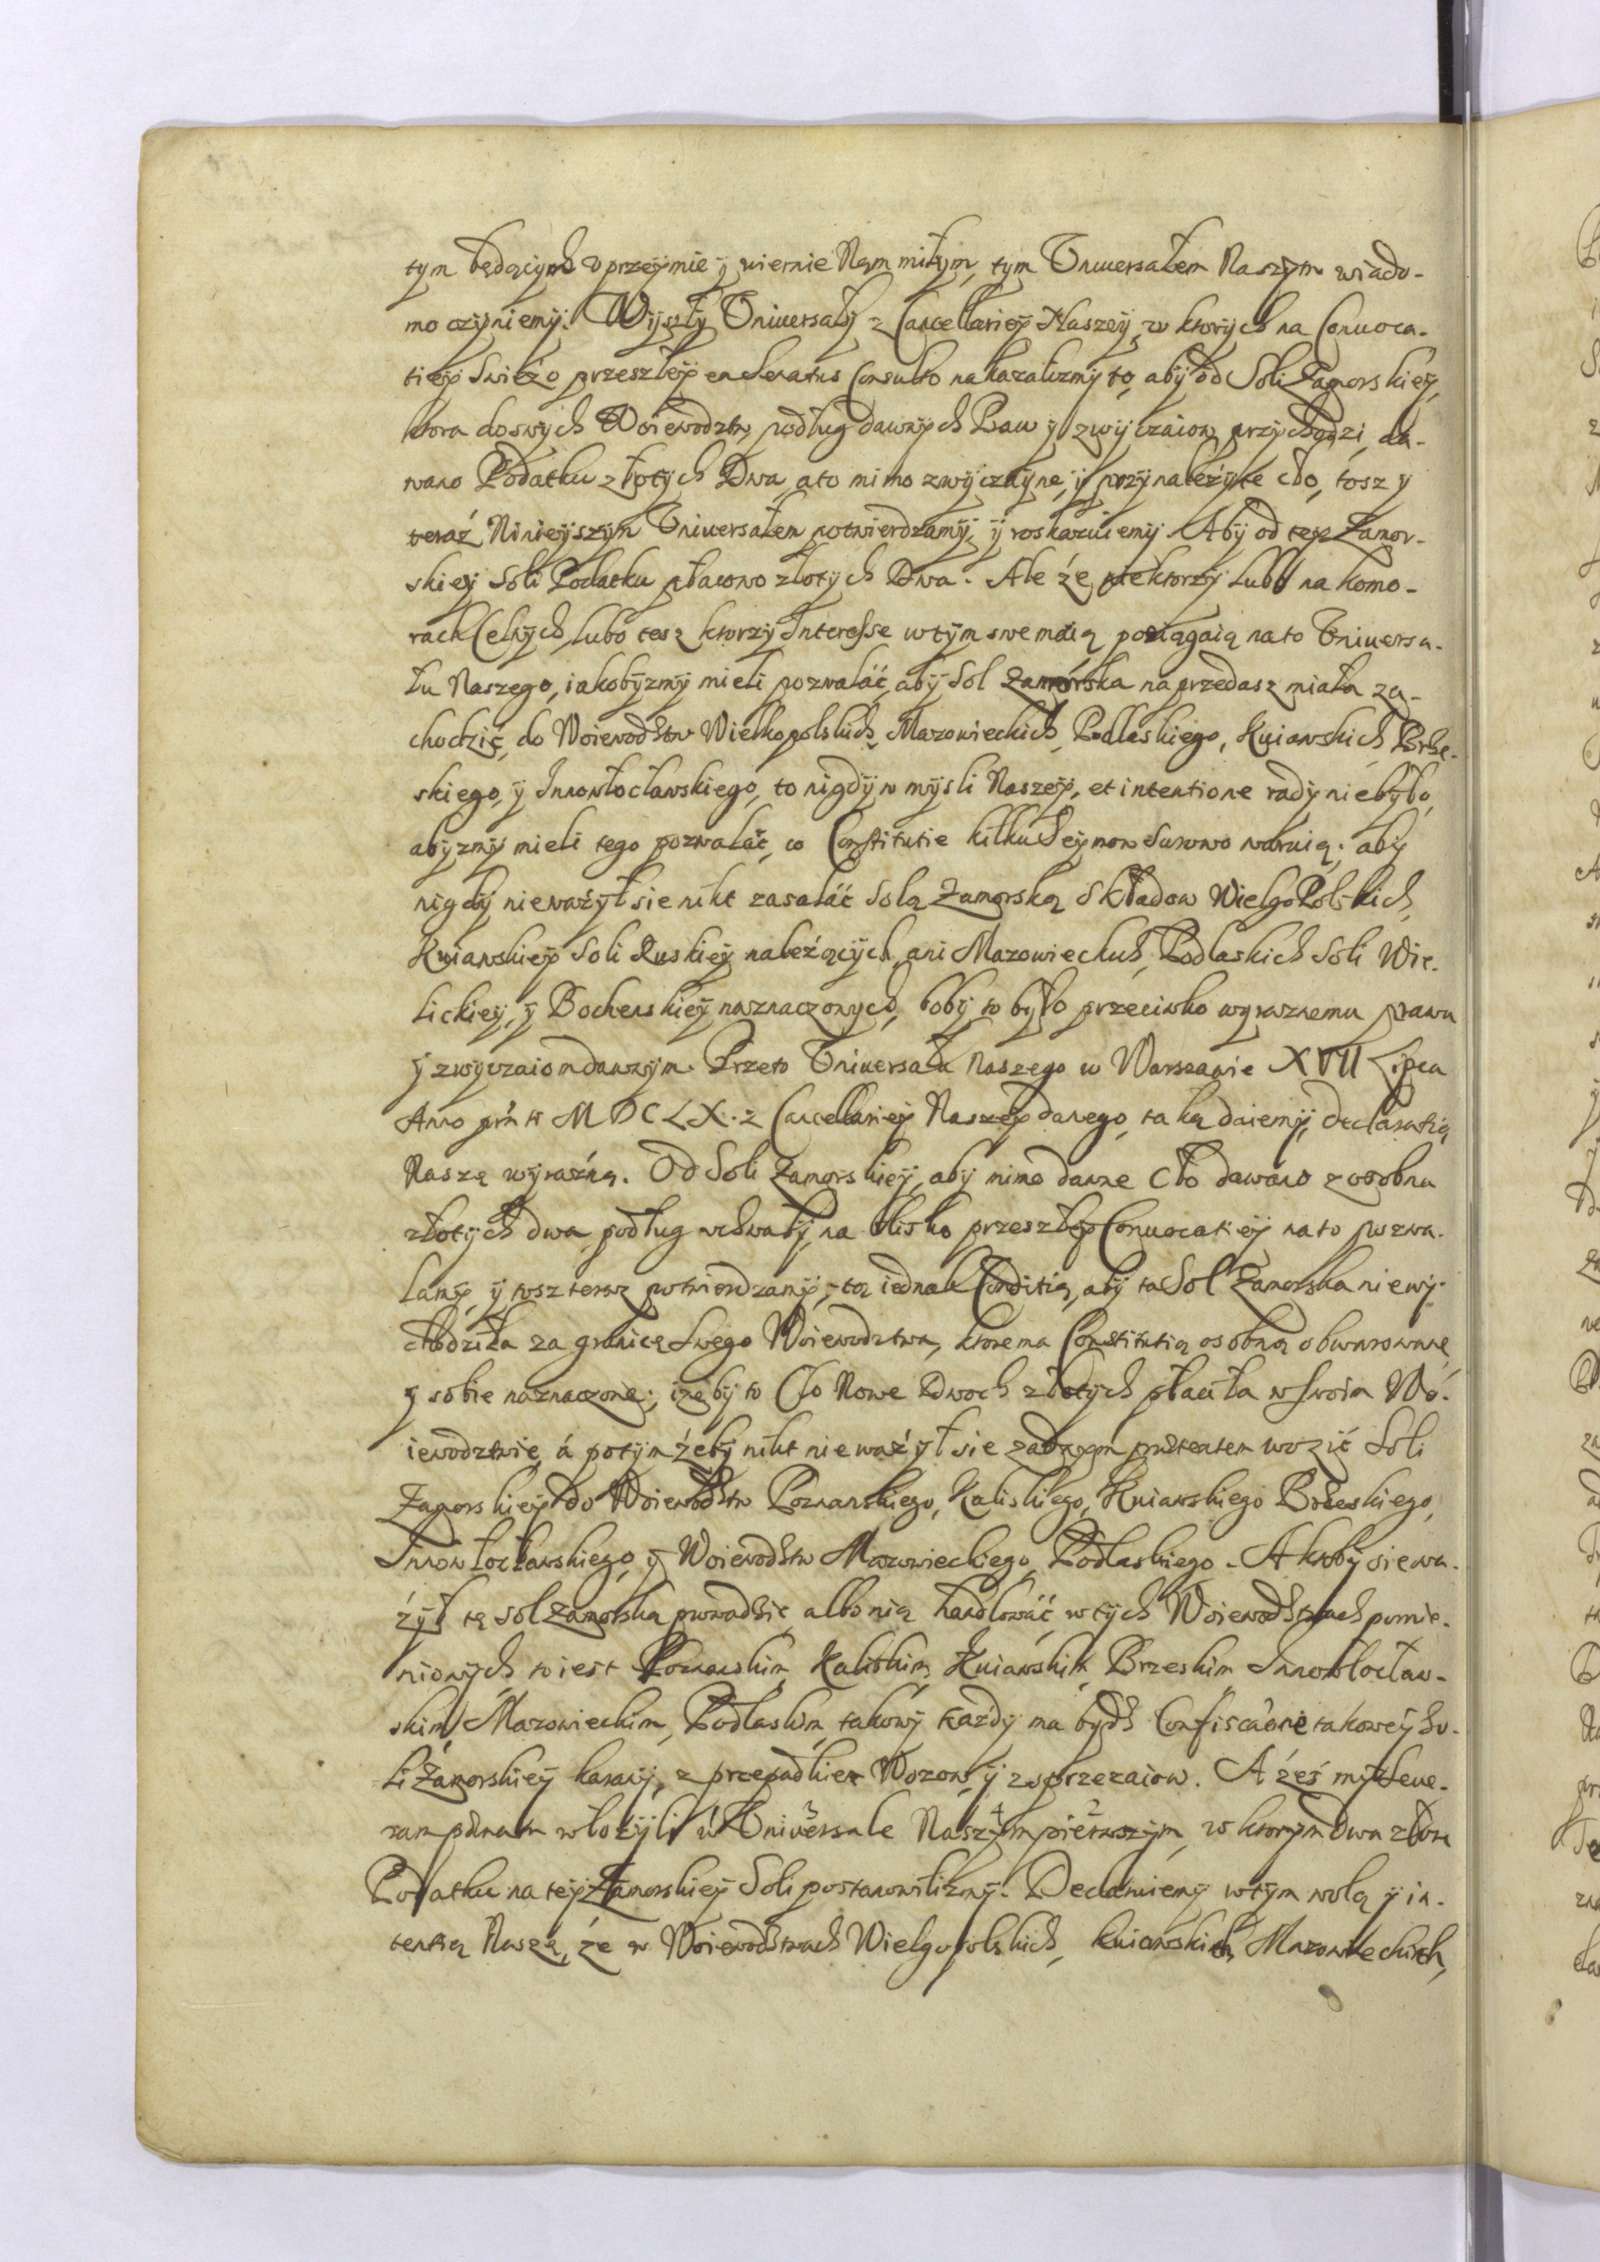 tym będących uprzeymie y wiernie Nam miłym, tym Uniuersałem Naszym wiado-
mo czyniemy. Wyszły Uniuersały z Cancellariey Naszey, w ktorych na Conuoca-
tiey swieżo przeszłey en Senatus Consulto nakazalizmy to, aby od Soli Zamorskiey,
ktora do swych Woiewodztw podług dawnych Praw y zwyczaiow przychodzi, da-
wano Podatku złotych Dwa, a to mimo zwyczayne, y przynależyte cło, tosz y
teraź Ninieyszym Uniuersałem potwierdzamy, y roskazuiemy. Aby od tey Zamor-
skiey Soli Podatku płacono złotych Dwa. Ale że niektorzy lubo na komo-
rach Celnych, lubo tesz ktorzy Interesse w tym swe maią pociągaią na to Uniuersa-
łu Naszego, iakobyzmy mieli pozwalać, aby Sol Zamorska na przedasz miała za-
chodzic, do Woiewodztw Wielkopolskich, Mazowieckich, Podlaskiego, Kuiawskich, Brze-
skiego, y Innowłocławskiego, to nigdy w mysli Naszey, et intentione rady niebyło,
abyzmy mieli tego pozwalać, co Constitutie kilku Seymow surowo waruią, aby
nigdy nieważył sie nikt zasalać Solą Zamorską Składow WielgoPolskich,
Kuiawskiey Soli Ruskiey należących, ani Mazowieckich, Podlaskich Soli Wie-
lickiey, y Bochenskiey naznaczonych, boby to było przeciwko wyraznemu prawu
y zwyczaiom dawnym. Przeto Uniuersału Naszego w Warszawie XVII Lipca
Anno prnti MDCLX. z Cancellariey Naszey danego, taką daiemy, declaratią
Naszę wyraźną. Od Soli Zamorskiey, aby mimo dawne Cło dawano z osobna
złotych dwa, podług uchwały, na blisko przeszłey Conuocatiey na to pozwa-
lamy, y tosz teraz potwierdzamy, tą iednak Conditią, aby ta Sol Zamorska niewy-
chodziła za granicę Swego Woiewodztwa, ktore ma Constitutią osobną obwarowane,
y sobie naznaczone, iżeby to Cło Nowe Dwoch złotych płaciła w swoim Wo-
iewodztwie, á potym żeby nikt nie ważył sie żadnym praetextem wozić Soli
Zamorskiey do Woiewodztw Poznanskiego, Kaliskiego, Kuiawskiego Brzeskiego,
Innowłocławskiego, y Woiewodztw Mazowieckiego, Podlaskiego. A ktoby sie wa-
żył tę Sol Zamorską prowadzic, albo nią handlować, w tych Woiewodztwach pomie-
nionych, to iest Poznanskim, Kaliskim, Kuiawskim, Brzeskim Innowłocław-
skim, Mazowieckim, Podlaskim, takowy każdy ma bydz Confiscatione takowey So-
li Zamorskiey karany, z przepadkiem Wozow, y zoprzezaiow. A żeś my Seue-
ram paenam włożyli w Uniuersale Naszym pierwszym, w ktorym dwa złote
Podatku na tey Zamorskiey Soli postanowilizmy. Declaruiemy w tym wolą y in-
tentią Naszą, że w Woiewodztwach Wielgopolskich, Kuiawskich, Mazowieckich,